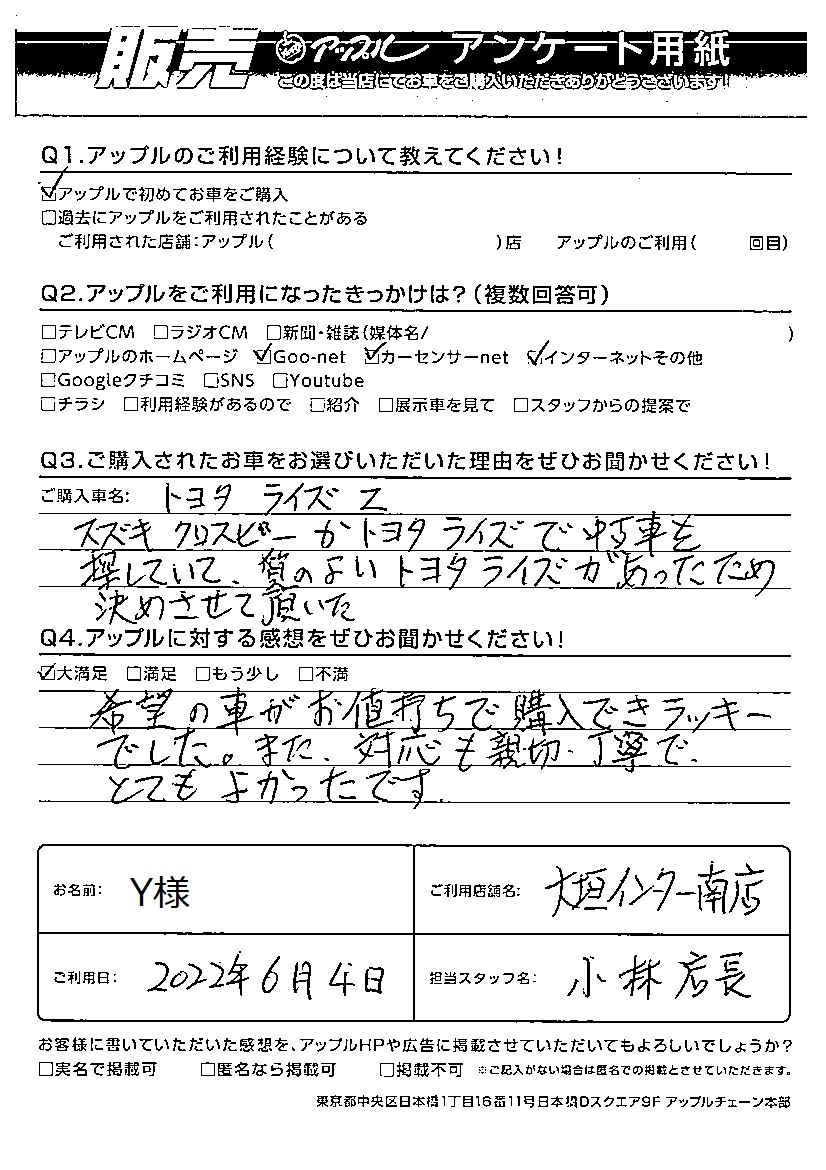 販売 アップル アンケート用紙
この度は当店にてお車をご購入いただきありがとうございます!!
Q1.アップルのご利用経験について教えてください!
☑アップルで初めてお車をご購入
□過去にアップルをご利用されたことがある
ご利用された店舗:アップル( )店 アップルのご利用( 回目)
Q2.アップルをご利用になったきっかけは?(複数回答可)
□テレビCM □ラジオCM □新聞・雑誌(媒体名/ )
□アップルのホームページ ☑Goo-net ☑カーセンサーnet ☑インターネットその他
□Googleクチコミ □SNS □Youtube
□チラシ □利用経験があるので □紹介 □展示車を見て □スタッフからの提案で
Q3.ご購入されたお車をお選びいただいた理由をぜひお聞かせください!
ご購入車名: トヨタ ライズ Z
スズキ クロスビーかトヨタ ライズで中古車を
探していて、質のよいトヨタ ライズがあったため
決めさせて頂いた
Q4.アップルに対する感想をぜひお聞かせください!
☑大満足 □満足 □もう少し □不満
希望の車がお値打ちで購入できラッキー
でした。また、対応も親切・丁寧で、
とてもよかったです
お名前: Y様 ご利用店舗名: 大垣インター南店
ご利用日: 2022年6月4日 担当スタッフ名: 小林店長
お客様に書いていただいた感想を、アップルHPや広告に掲載させていただいてもよろしいでしょうか?
□実名で掲載可 □匿名なら掲載可 □掲載不可 ※ご記入がない場合は匿名での掲載とさせていただきます。
東京都中央区日本橋1丁目16番11号日本橋Dスクエア9F アップルチェーン本部